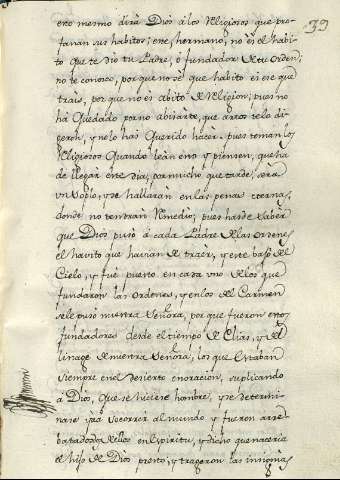 39
eso mesmo dirà Dios à los Religiosos que pro-
fanan sus habitos; ese, hermano, no es el habi-
to que te dio tu Padre, ò fundador de tu Orden;
no te conosco, porque no sè que habito es ese que
traìs, porque no ès abito de Religion; pues no
hà Quedado por no abisarte, que artos telo di-
geron, y nolo has Querido hacèr. pues teman los
Religiosos Quando lean esto y piensen, que ha
de llegar este dia, por mucho que tarde, serà
vn sopio, y se hallaràn en las penas eternas,
donde no tendràn Remedio; pues hasede sabèr
que Dios puso à cada Padre de las Ordenes
el havito que havian de traer, y este baso del
Cielo, y fuè puesto en cada vno de los que
fundaron las Ordenes, y en los del Carmen
sele puso nuestra Señora, por que fueron
fundadores desde el tiempo de Elias, y del
linage de nuestra Señora, los que Estaban
siempre en el desierto en oracion, suplicando
à Dios, Que se hiciese hombre, y se determi-
nase para socorrer al mundo y fueron arre-
batados en Espiritu, y dicho que naceria
el hijo de Dios presto, y trageron las insignias